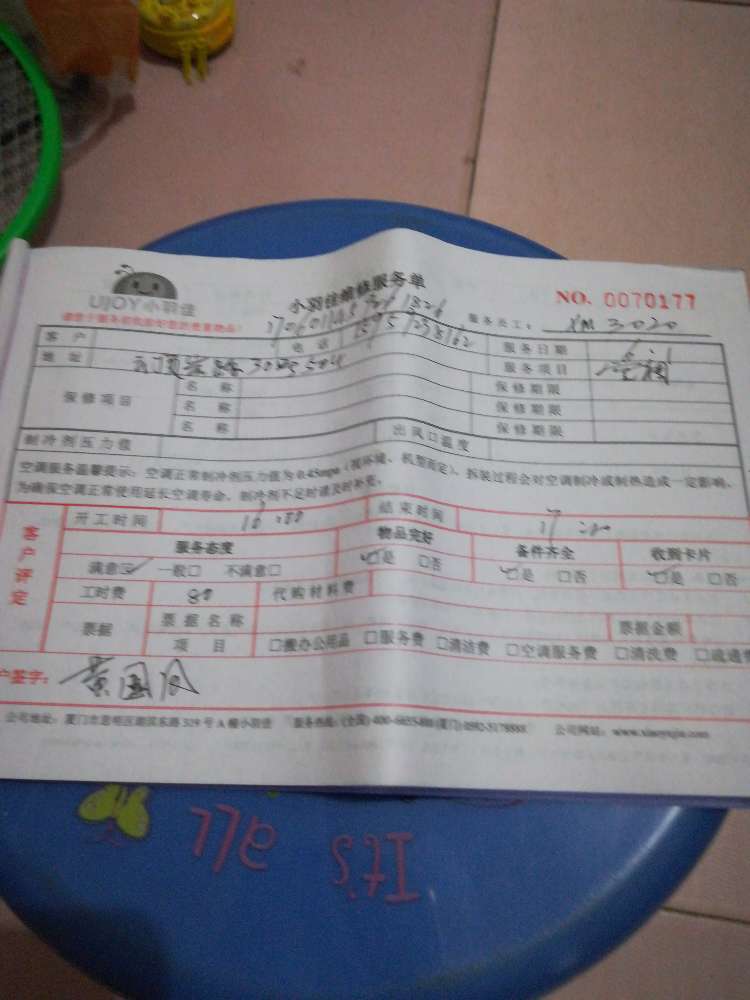 UJOY小羽佳
小羽佳维修服务单
NO. 0070177
服务员工: XM 3020
客户
电话
服务日期
地址
服务项目
保修项目
名称
保修期限
名称
保修期限
名称
保修期限
制冷剂压力值
出风口温度
空调服务温馨提示:空调正常制冷剂压力值为0.45mpa(视环境、机型而定)。拆装过程会对空调制冷或制热造成一定影响,
为确保空调正常使用延长空调寿命,制冷剂不足时请及时补充。
客户评定
开工时间
结束时间
服务态度
物品完好
备件齐全
收到卡片
满意☑ 一般□ 不满意□
☑是 □否
☑是 □否
☑是 □否
工时费 80 代购材料费
票据
票据名称
票据金额
项目 □搬办公用品 □服务费 □清洁费 □空调服务费 □清洗费 □疏通费
户签字:
公司地址:厦门市思明区湖滨东路329号A楼小羽佳 服务热线:(全国)400-6655-888 (厦门)0592-5178888 公司网站:www.xiaoyujia.com
It's all